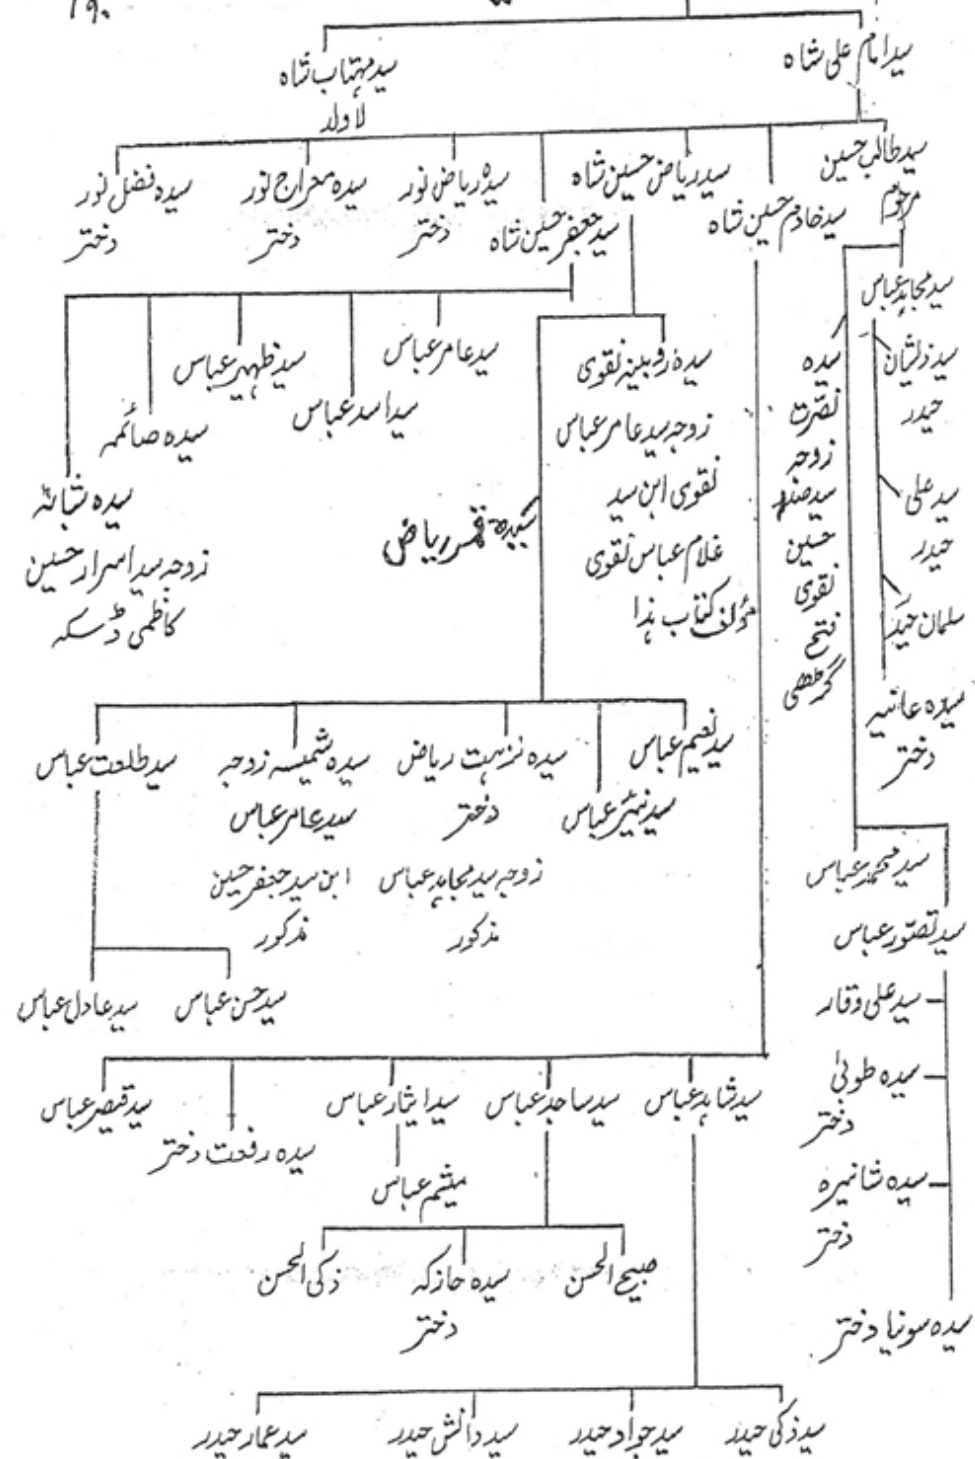 ۱۹۰
سید امام علی شاہ
سید مہتاب شاہ
لاولد
سید طالب حسین
مرحوم
سید خادم حسین شاہ
سید ریاض حسین شاہ
سید جعفر حسین شاہ
سیدہ ریاض نور
دختر
سیدہ معراج نور
دختر
سیدہ فضل نور
دختر
سید مجاہد عباس
سید ذیشان
حیدر
سید علی
حیدر
سلمان حیدر
سیدہ عانیہ
دختر
سیدہ
نصرت
زوجہ
سید صفدر
حسین
نقوی
فتح
گڑھی
سیدہ روبینہ نقوی
زوجہ سید عامر عباس
نقوی ابن سید
غلام عباس نقوی
مؤلف کتاب ہذا
سیدہ قمر ریاض
سید عامر عباس
سید اسد عباس
سید ظہیر عباس
سیدہ صائمہ
سیدہ شبانہ
زوجہ سید اسرار حسین
کاظمی ڈسکہ
سید نعیم عباس
سید نیئر عباس
سیدہ نزہت ریاض
دختر
زوجہ سید مجاہد عباس
مذکور
سیدہ شمیسہ زوجہ
سید عامر عباس
ابن سید جعفر حسین
مذکور
سید طلعت عباس
سید حسن عباس
سید عادل عباس
سید محمد عباس
سید تصور عباس
سید علی وقار
سیدہ طوبیٰ
دختر
سیدہ شانیرہ
دختر
سیدہ سونیا دختر
سید شاہد عباس
سید ساجد عباس
سید ایثار عباس
سیدہ رفعت دختر
سید قیصر عباس
میثم عباس
صبیح الحسن
سیدہ حازکہ
دختر
ذکی الحسن
سید ذکی حیدر
سید جواد حیدر
سید دانش حیدر
سید عمار حیدر